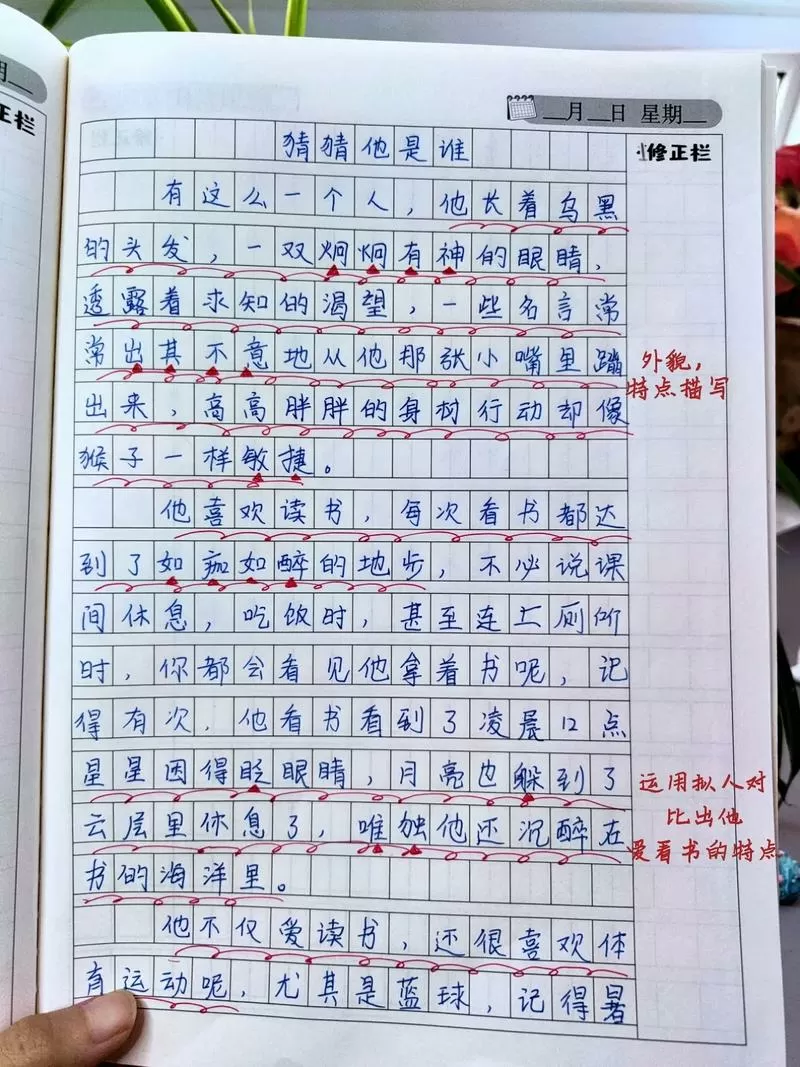 期
正栏
月 日 星期
修正栏
猜猜他是谁
有这么一个人，他长着乌黑
的头发，一双炯炯有神的眼睛，
透露着求知的渴望，一些名言常
常出其不意地从他那张小嘴里蹦
出来，高高胖胖的身树行动却像
猴子一样敏捷。
外貌，
特点描写
他喜欢读书，每次看书都达
到了如痴如醉的地步，不必说课
间休息，吃饭时，甚至连上厕所
时，你都会看见他拿着书呢，记
得有次，他看书看到了凌晨12点
星星困得眨眼睛，月亮也躲到了
云层里休息了，唯独他还沉醉在
书的海洋里。
运用拟人对
比出他
爱看书的特点
他不仅爱读书，还很喜欢体
育运动呢，尤其是蓝球，记得暑